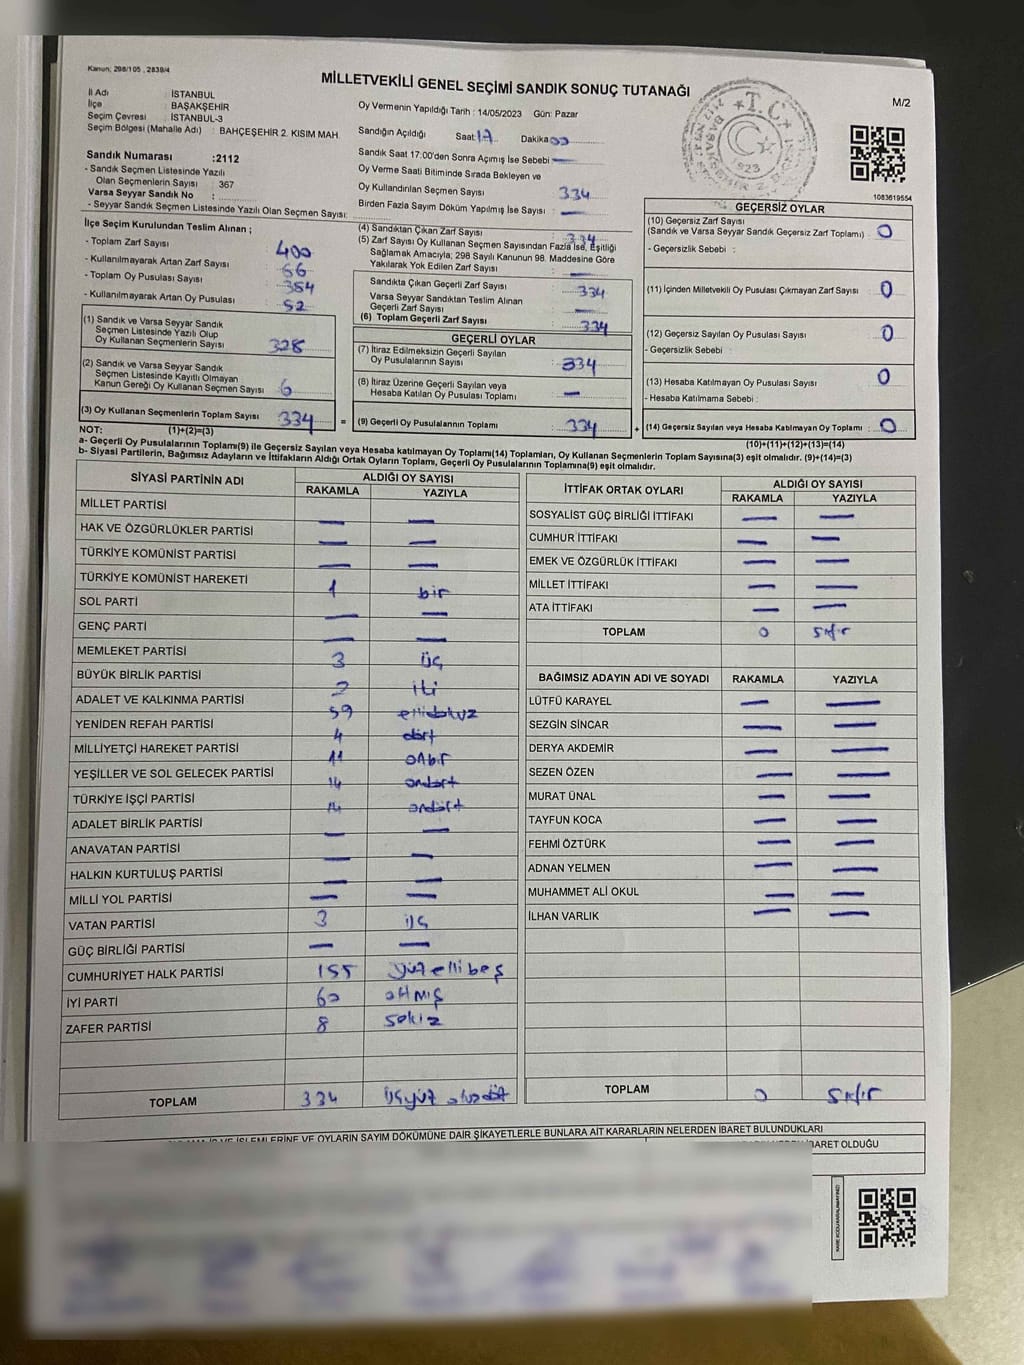 Kanun: 298/105 , 2839/4
MİLLETVEKİLİ GENEL SEÇİMİ SANDIK SONUÇ TUTANAĞI
M/2
İl Adı : İSTANBUL
İlçe : BAŞAKŞEHİR
Seçim Çevresi : İSTANBUL-3
Seçim Bölgesi (Mahalle Adı) : BAHÇEŞEHİR 2. KISIM MAH
Sandık Numarası :2112
- Sandık Seçmen Listesinde Yazılı
Olan Seçmenlerin Sayısı : 367
Varsa Seyyar Sandık No :
- Seyyar Sandık Seçmen Listesinde Yazılı Olan Seçmen Sayısı:
Oy Vermenin Yapıldığı Tarih : 14/05/2023 Gün: Pazar
Sandığın Açıldığı Saat: 17 Dakika 00
Sandık Saat 17:00'den Sonra Açımış İse Sebebi —
Oy Verme Saati Bitiminde Sırada Bekleyen ve
Oy Kullandırılan Seçmen Sayısı : 334
Birden Fazla Sayım Döküm Yapılmış İse Sayısı : —
T.C.
1923
1083619554
İlçe Seçim Kurulundan Teslim Alınan ;
- Toplam Zarf Sayısı : 400
- Kullanılmayarak Artan Zarf Sayısı : 66
- Toplam Oy Pusulası Sayısı : 384
- Kullanılmayarak Artan Oy Pusulası : 52
(1) Sandık ve Varsa Seyyar Sandık
Seçmen Listesinde Yazılı Olup
Oy Kullanan Seçmenlerin Sayısı : 328
(2) Sandık ve Varsa Seyyar Sandık
Seçmen Listesinde Kayıtlı Olmayan
Kanun Gereği Oy Kullanan Seçmen Sayısı : 6
(3) Oy Kullanan Seçmenlerin Toplam Sayısı : 334 =
(1)+(2)=(3)
(4) Sandıktan Çıkan Zarf Sayısı : 334
(5) Zarf Sayısı Oy Kullanan Seçmen Sayısından Fazla İse, Eşitliği
Sağlamak Amacıyla; 298 Sayılı Kanunun 98. Maddesine Göre
Yakılarak Yok Edilen Zarf Sayısı : —
Sandıkta Çıkan Geçerli Zarf Sayısı : 334
Varsa Seyyar Sandıktan Teslim Alınan
Geçerli Zarf Sayısı : —
(6) Toplam Geçerli Zarf Sayısı : 334
GEÇERLİ OYLAR
(7) İtiraz Edilmeksizin Geçerli Sayılan
Oy Pusulalarının Sayısı : 334
(8) İtiraz Üzerine Geçerli Sayılan veya
Hesaba Katılan Oy Pusulası Toplamı : —
(9) Geçerli Oy Pusulalarının Toplamı : 334 +
GEÇERSİZ OYLAR
(10) Geçersiz Zarf Sayısı
(Sandık ve Varsa Seyyar Sandık Geçersiz Zarf Toplamı) : 0
- Geçersizlik Sebebi :
(11) İçinden Milletvekili Oy Pusulası Çıkmayan Zarf Sayısı : 0
(12) Geçersiz Sayılan Oy Pusulası Sayısı : 0
- Geçersizlik Sebebi :
(13) Hesaba Katılmayan Oy Pusulası Sayısı : 0
- Hesaba Katılmama Sebebi :
(14) Geçersiz Sayılan veya Hesaba Katılmayan Oy Toplamı : 0
(10)+(11)+(12)+(13)=(14)
NOT:
a- Geçerli Oy Pusulalarının Toplamı(9) ile Geçersiz Sayılan veya Hesaba katılmayan Oy Toplamı(14) Toplamları, Oy Kullanan Seçmenlerin Toplam Sayısına(3) eşit olmalıdır. (9)+(14)=(3)
b- Siyasi Partilerin, Bağımsız Adayların ve İttifakların Aldığı Ortak Oyların Toplamı, Geçerli Oy Pusulalarının Toplamına(9) eşit olmalıdır.
SİYASİ PARTİNİN ADI ALDIĞI OY SAYISI
RAKAMLA YAZIYLA
MİLLET PARTİSİ — —
HAK VE ÖZGÜRLÜKLER PARTİSİ — —
TÜRKİYE KOMÜNİST PARTİSİ — —
TÜRKİYE KOMÜNİST HAREKETİ 1 bir
SOL PARTİ — —
GENÇ PARTİ — —
MEMLEKET PARTİSİ 3 üç
BÜYÜK BİRLİK PARTİSİ 2 iki
ADALET VE KALKINMA PARTİSİ 59 ellidokuz
YENİDEN REFAH PARTİSİ 4 dört
MİLLİYETÇİ HAREKET PARTİSİ 11 onbir
YEŞİLLER VE SOL GELECEK PARTİSİ 14 ondört
TÜRKİYE İŞÇİ PARTİSİ 14 ondört
ADALET BİRLİK PARTİSİ — —
ANAVATAN PARTİSİ — —
HALKIN KURTULUŞ PARTİSİ — —
MİLLİ YOL PARTİSİ — —
VATAN PARTİSİ 3 üç
GÜÇ BİRLİĞİ PARTİSİ — —
CUMHURİYET HALK PARTİSİ 155 yüzellibeş
İYİ PARTİ 60 altmış
ZAFER PARTİSİ 8 sekiz
TOPLAM 334 üçyüz otuzdört
İTTİFAK ORTAK OYLARI ALDIĞI OY SAYISI
RAKAMLA YAZIYLA
SOSYALİST GÜÇ BİRLİĞİ İTTİFAKI — —
CUMHUR İTTİFAKI — —
EMEK VE ÖZGÜRLÜK İTTİFAKI — —
MİLLET İTTİFAKI — —
ATA İTTİFAKI — —
TOPLAM 0 sıfır
BAĞIMSIZ ADAYIN ADI VE SOYADI RAKAMLA YAZIYLA
LÜTFÜ KARAYEL — —
SEZGİN SİNCAR — —
DERYA AKDEMİR — —
SEZEN ÖZEN — —
MURAT ÜNAL — —
TAYFUN KOCA — —
FEHMİ ÖZTÜRK — —
ADNAN YELMEN — —
MUHAMMET ALİ OKUL — —
İLHAN VARLIK — —
TOPLAM 0 sıfır
VE İŞLEMLERİNE VE OYLARIN SAYIM DÖKÜMÜNE DAİR ŞİKAYETLERLE BUNLARA AİT KARARLARIN NELERDEN İBARET BULUNDUKLARI
İBARET OLDUĞU